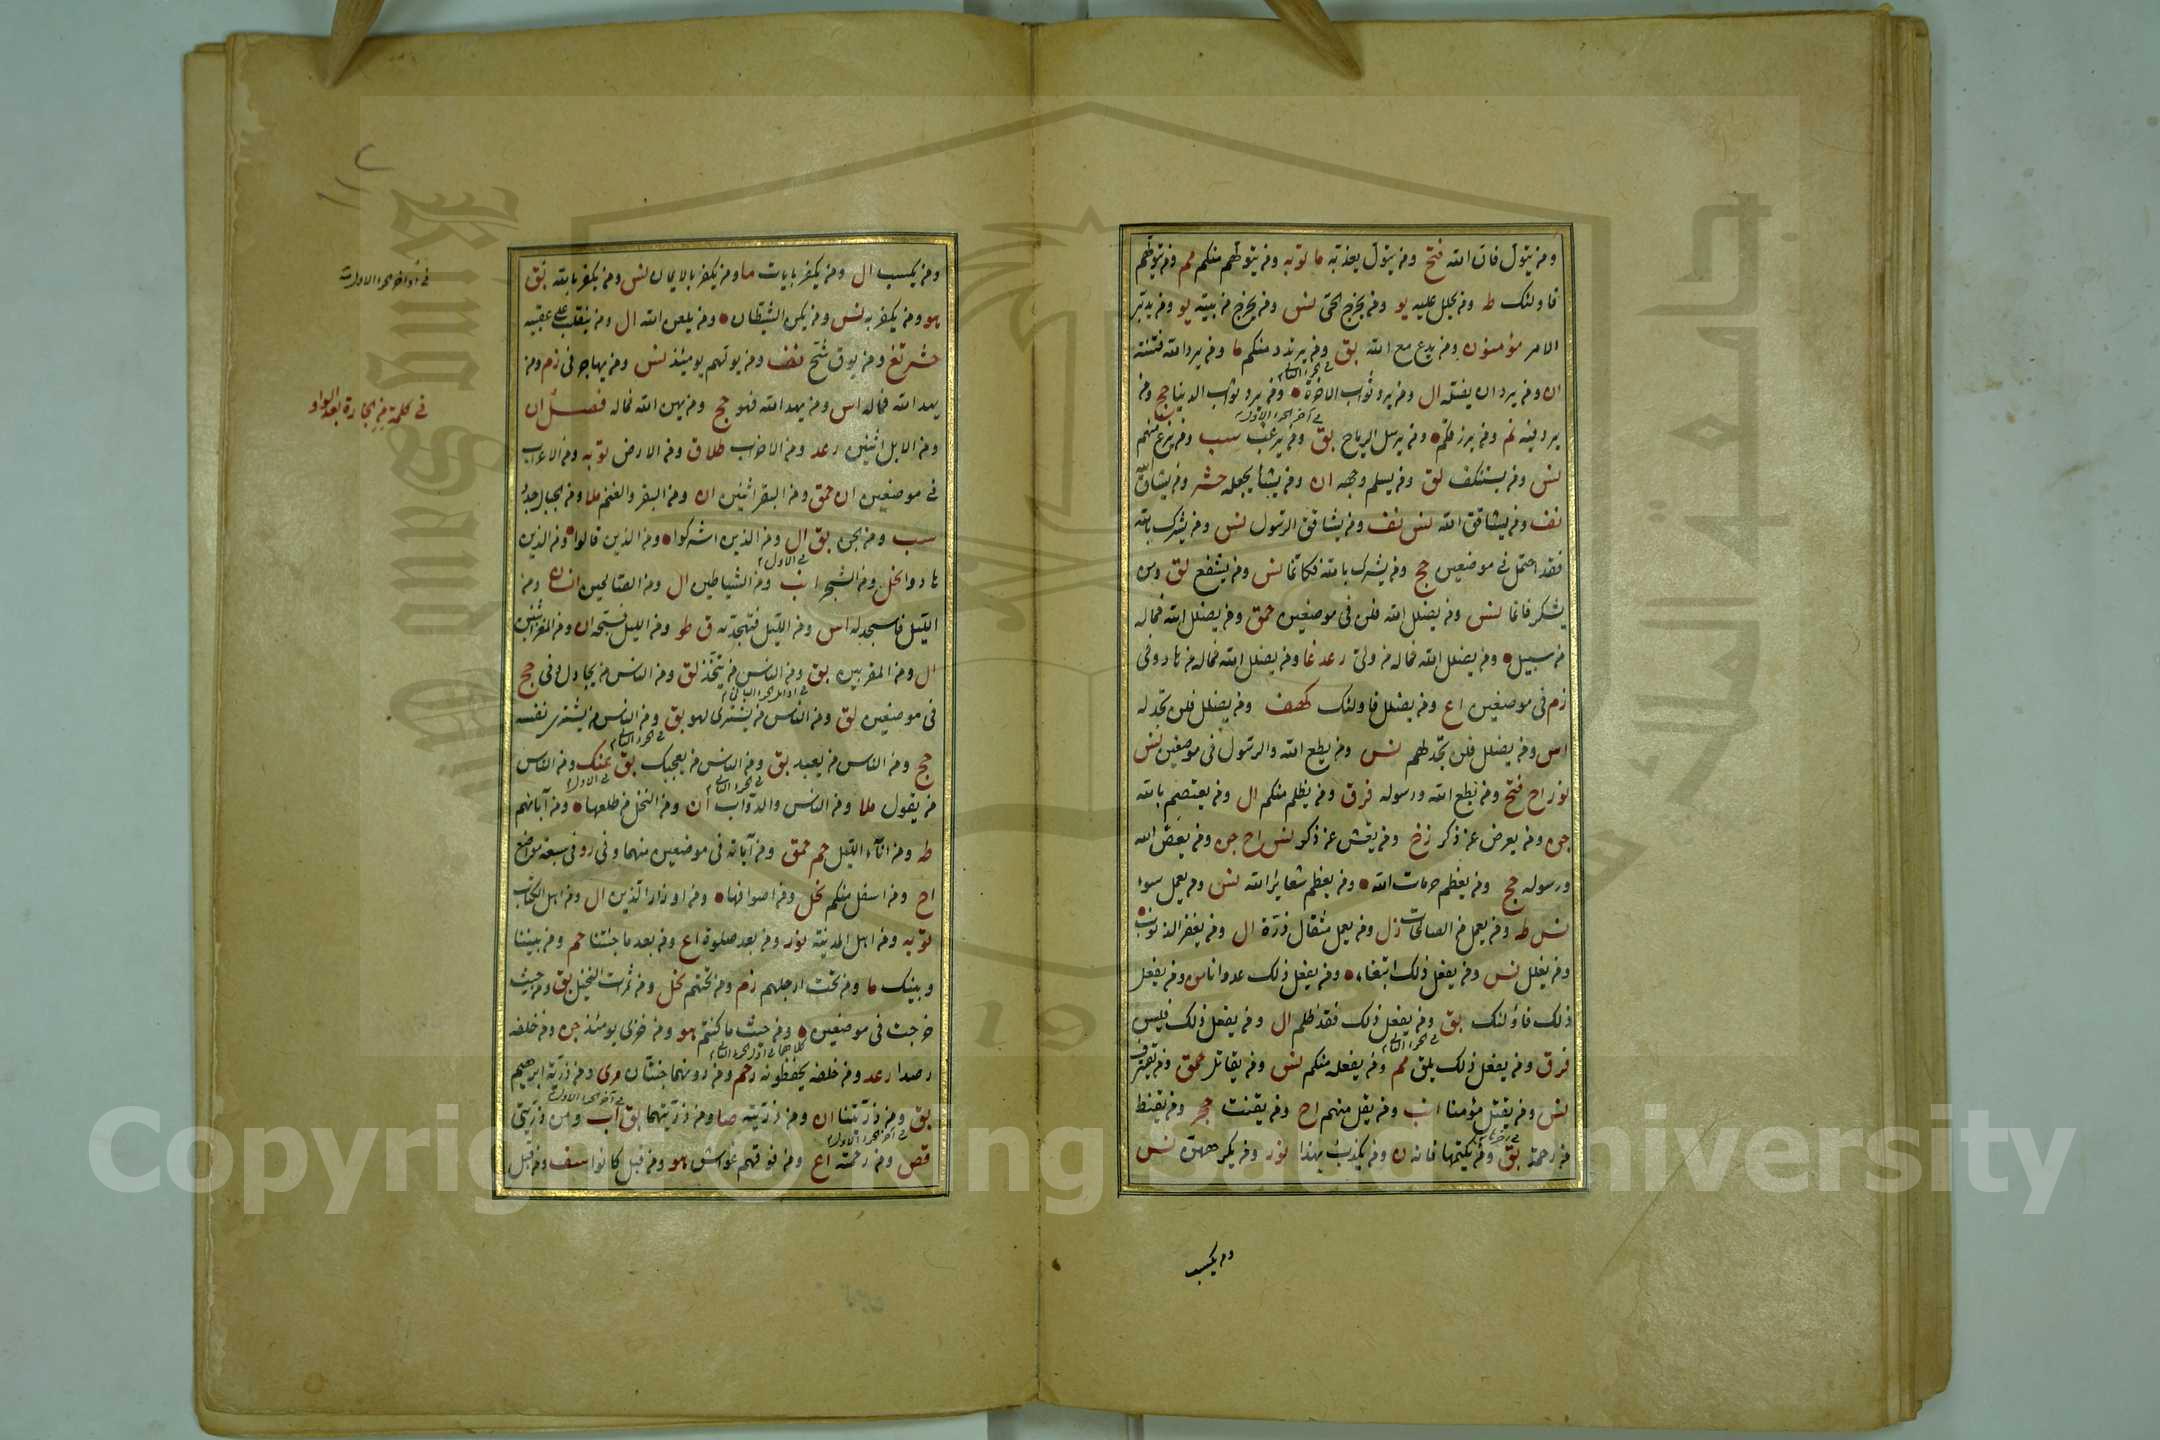 ومن يتول فان الله فتح ومن يتول يعذبه ما توبه ومن يتولهم منكم مم ومن يتولهم
فاولئك طه ومن يحلل عليه يو ومن يخرج الحى نس ومن يخرج من بيته يو ومن يدبر
الامر مؤمنون ومن يدع مع الله بق ومن يرتدد منكم ما ومن يرد الله فتنته
ان ومن يرد ان يضله ال ومن يرد ثواب الاخرة ومن يرد ثواب الدنيا حج ومن
يرد فيه نم ومن يرزقكم ومن يرسل الرياح بق ومن يرغب سب ومن يزغ منهم
نس ومن يستنكف لق ومن يسلم وجهه ان ومن يشا يجعله حشر ومن يشاق الله
نف ومن يشاقق الله نس نف ومن يشاقق الرسول نس ومن يشرك بالله
فقد احتمل فى موضعين حج ومن يشرك بالله فكانما نس ومن يشفع لق ومن
يشكر فانما نس ومن يضلل الله فلن فى موضعين حمق ومن يضلل الله فماله
من سبيل ومن يضلل الله فماله من ولى رعد غا ومن يضلل الله فماله من هاد وفى
زم فى موضعين اع ومن يضلل فاولئك كهف ومن يضلل فلن تجد له
اس ومن يضلل فلن تجد لهم نس ومن يطع الله والرسول فى موضعين نس
نور اح فتح ومن يطع الله ورسوله فرق ومن يظلم منكم ال ومن يعتصم بالله
جن ومن يعرض عن ذكر زخ ومن يعش عن ذكر نس اح جن ومن يعص الله
ورسوله حج ومن يعظم حرمات الله ومن يعظم شعائر الله نس ومن يعمل سوء
نس طه ومن يعمل من الصالحات زل ومن يعمل مثقال ذرة ال ومن يغفر الذنوب
ومن يغلل نس ومن يفعل ذلك ابتغاء ومن يفعل ذلك عدوانا من ومن يفعل
ذلك فاولئك بق ومن يفعل ذلك فقد ظلم ال ومن يفعل ذلك فليس
فرق ومن يفعل ذلك يلق مم ومن يفعله منكم نس ومن يقاتل حمق ومن يقترف
نس ومن يقتل مؤمنا انب ومن يقل منهم اح ومن يقنت حجر ومن يقنط
من رحمة بق ومن يكتمها فانه ن ومن يكذب بهذا نور ومن يكرههن نس
ومن يكسب
ومن يكسب ال ومن يكفر بايات ما ومن يكفر بالايمان نس ومن يكفر بالله بق
هو ومن يكفر به نس ومن يكن الشيطان ومن يلعن الله ال ومن ينقلب على عقبيه
حشر تغ ومن يوق شح نف ومن يولهم يومئذ نس ومن يهاجر فى زم ومن
يهد الله فماله اس ومن يهد الله فهو حج ومن يهن الله فماله فصل ان
ومن الابل اثنين رعد ومن الاحزاب طلاق ومن الارض توبه ومن الاعراب
فى موضعين ان حمق ومن البقر اثنين ان ومن البقر والغنم ملا ومن الجبال جدد
سب ومن الجن بق ال ومن الذين اشركوا ومن الذين قالوا ومن الذين
هادوا نحل ومن الشجر انب ومن الشياطين ال ومن الصالحين انع ومن
الليل فاسجد له اس ومن الليل فتهجد به ق طو ومن الليل فسبحه ان ومن المعز اثنين
ال ومن المقربين بق ومن الناس من يتخذ لق ومن الناس من يجادل وفى حج
فى موضعين لق ومن الناس من يشترى لهو بق ومن الناس من يشترى نفسه
حج ومن الناس من يعبد بق ومن الناس من يعجبك بق عنك ومن الناس
من يقول ملا ومن الناس والدواب ان ومن النخل من طلعها ومن آبائهم
طه ومن اناء الليل حم حمق ومن آياته فى موضعين منهما وفى رو فى سبعة مواضع
اح ومن اسفل منكم نحل ومن اصوافها ومن اوزار الذين ال ومن اهل الكتاب
توبه ومن اهل المدينة نور ومن بعد صلوة اع ومن بعد ما جئتنا حم ومن بيننا
وبينك ما ومن تحت ارجلهم زم ومن تحتهم نحل ومن ثمرات النخيل بق ومن حيث
خرجت فى موضعين ومن حيث ما كنتم هو ومن خزى يومئذ جن ومن خلفه
رصدا رعد ومن خلفه يحفظونه رحم ومن دونهما جنتان مرى ومن ذرية ابرهيم
بق ومن ذريتنا ان ومن ذريته صا ومن ذريتهما بق اب ومن ذريتى
قص ومن رحمته اع ومن فوقهم غواش هو ومن قبل كانوا سف ومن قبل
فى اواخر الجزء الاول
فى كلمة من الجارة بعد الواو
Copyright © King Saud University
King Saud University
1957